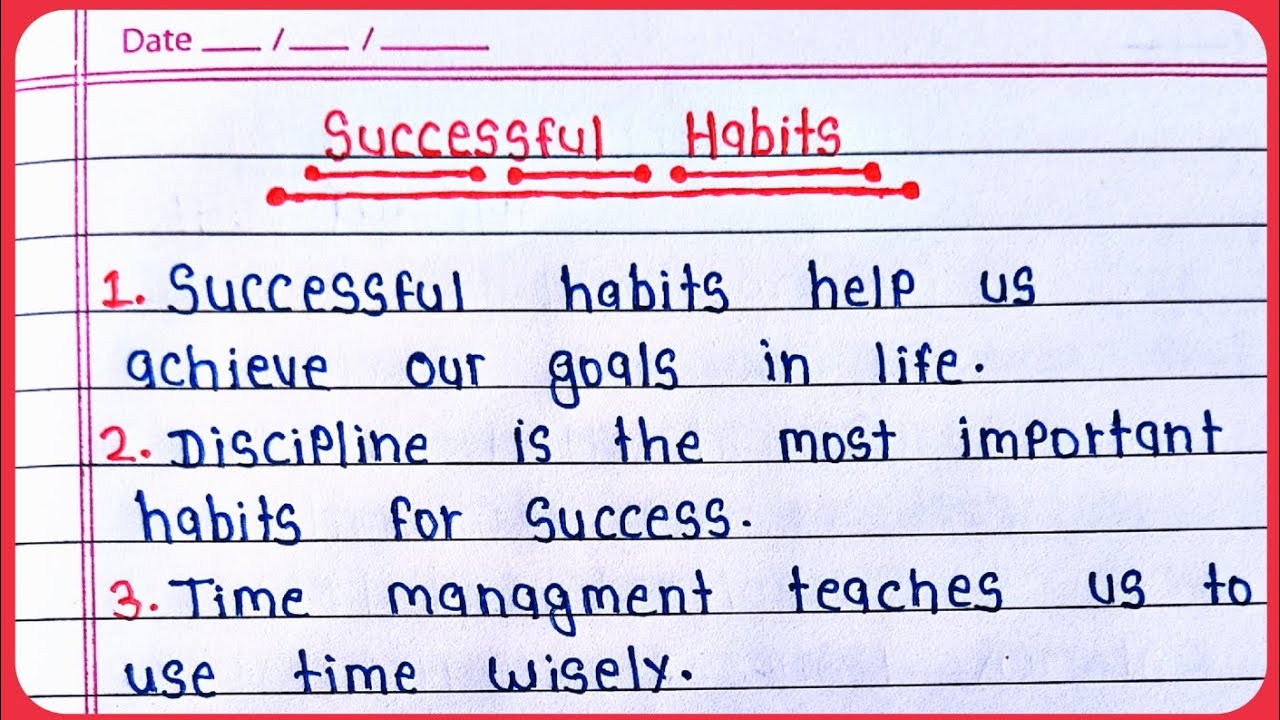 Date ___ / ___ / _____
Successful Habits
1. Successful habits help us
achieve our goals in life.
2. Discipline is the most important
habits for success.
3. Time managment teaches us to
use time wisely.